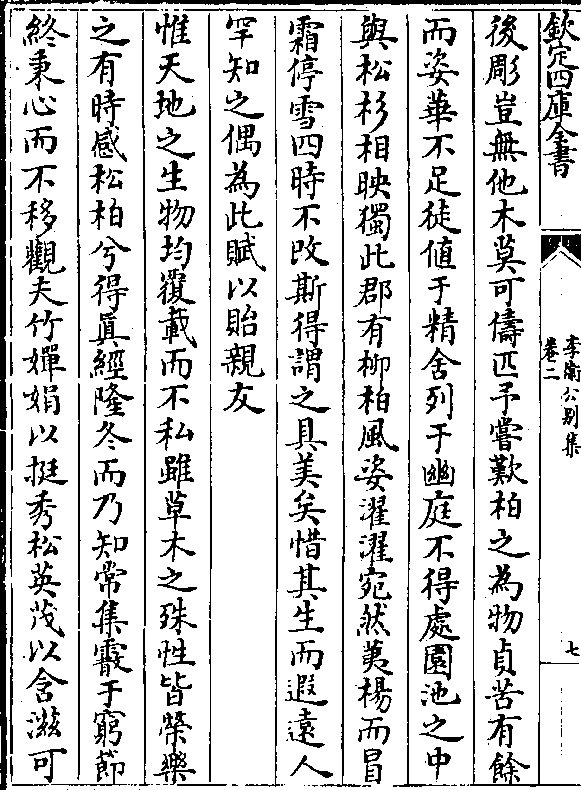 欽定四庫全書
李衛公別集
卷二
七
後彫豈無他木莫可儔匹予嘗歎柏之為物貞苦有餘
而姿華不足徒值于精舍列于幽庭不得處園池之中
與松杉相映獨此郡有柳柏風姿濯濯宛然荑楊而冒
霜停雪四時不改斯得謂之具美矣惜其生而遐遠人
罕知之偶為此賦以貽親友
惟天地之生物均覆載而不私雖草木之殊性皆榮樂
之有時感松柏兮得眞經隆冬而乃知常集霰于窮節
終秉心而不移觀夫竹嬋娟以挺秀松英茂以含滋可